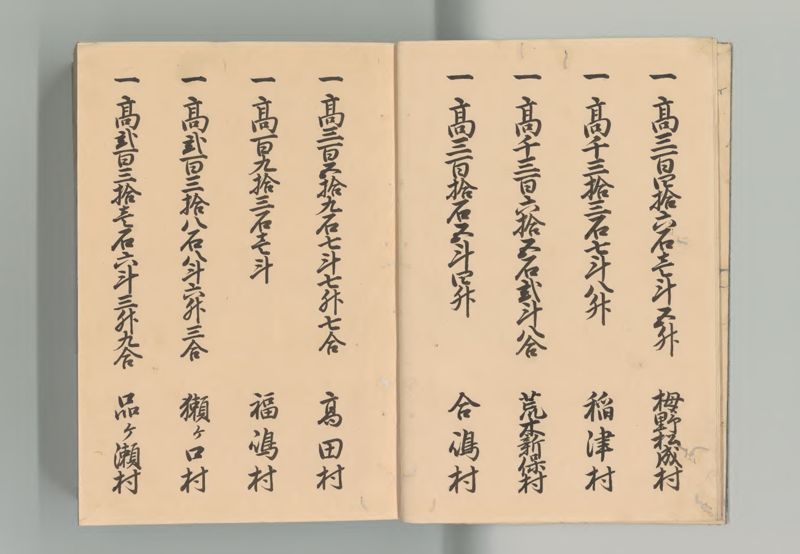 一 高三百四拾六石壱斗五升 栂野私成村
一 高千三拾三石七斗八升 稲津村
一 高千三百六拾五石弐斗八合 荒木新保村
一 高三百拾石五斗四升 合嶋村
一 高三百五拾九石七斗七升七合 高田村
一 高一百九拾三石壱斗 福嶋村
一 高弐百三拾八石八斗六升三合 獺ヶ口村
一 高弐百三拾壱石六斗三升九合 品ヶ瀬村